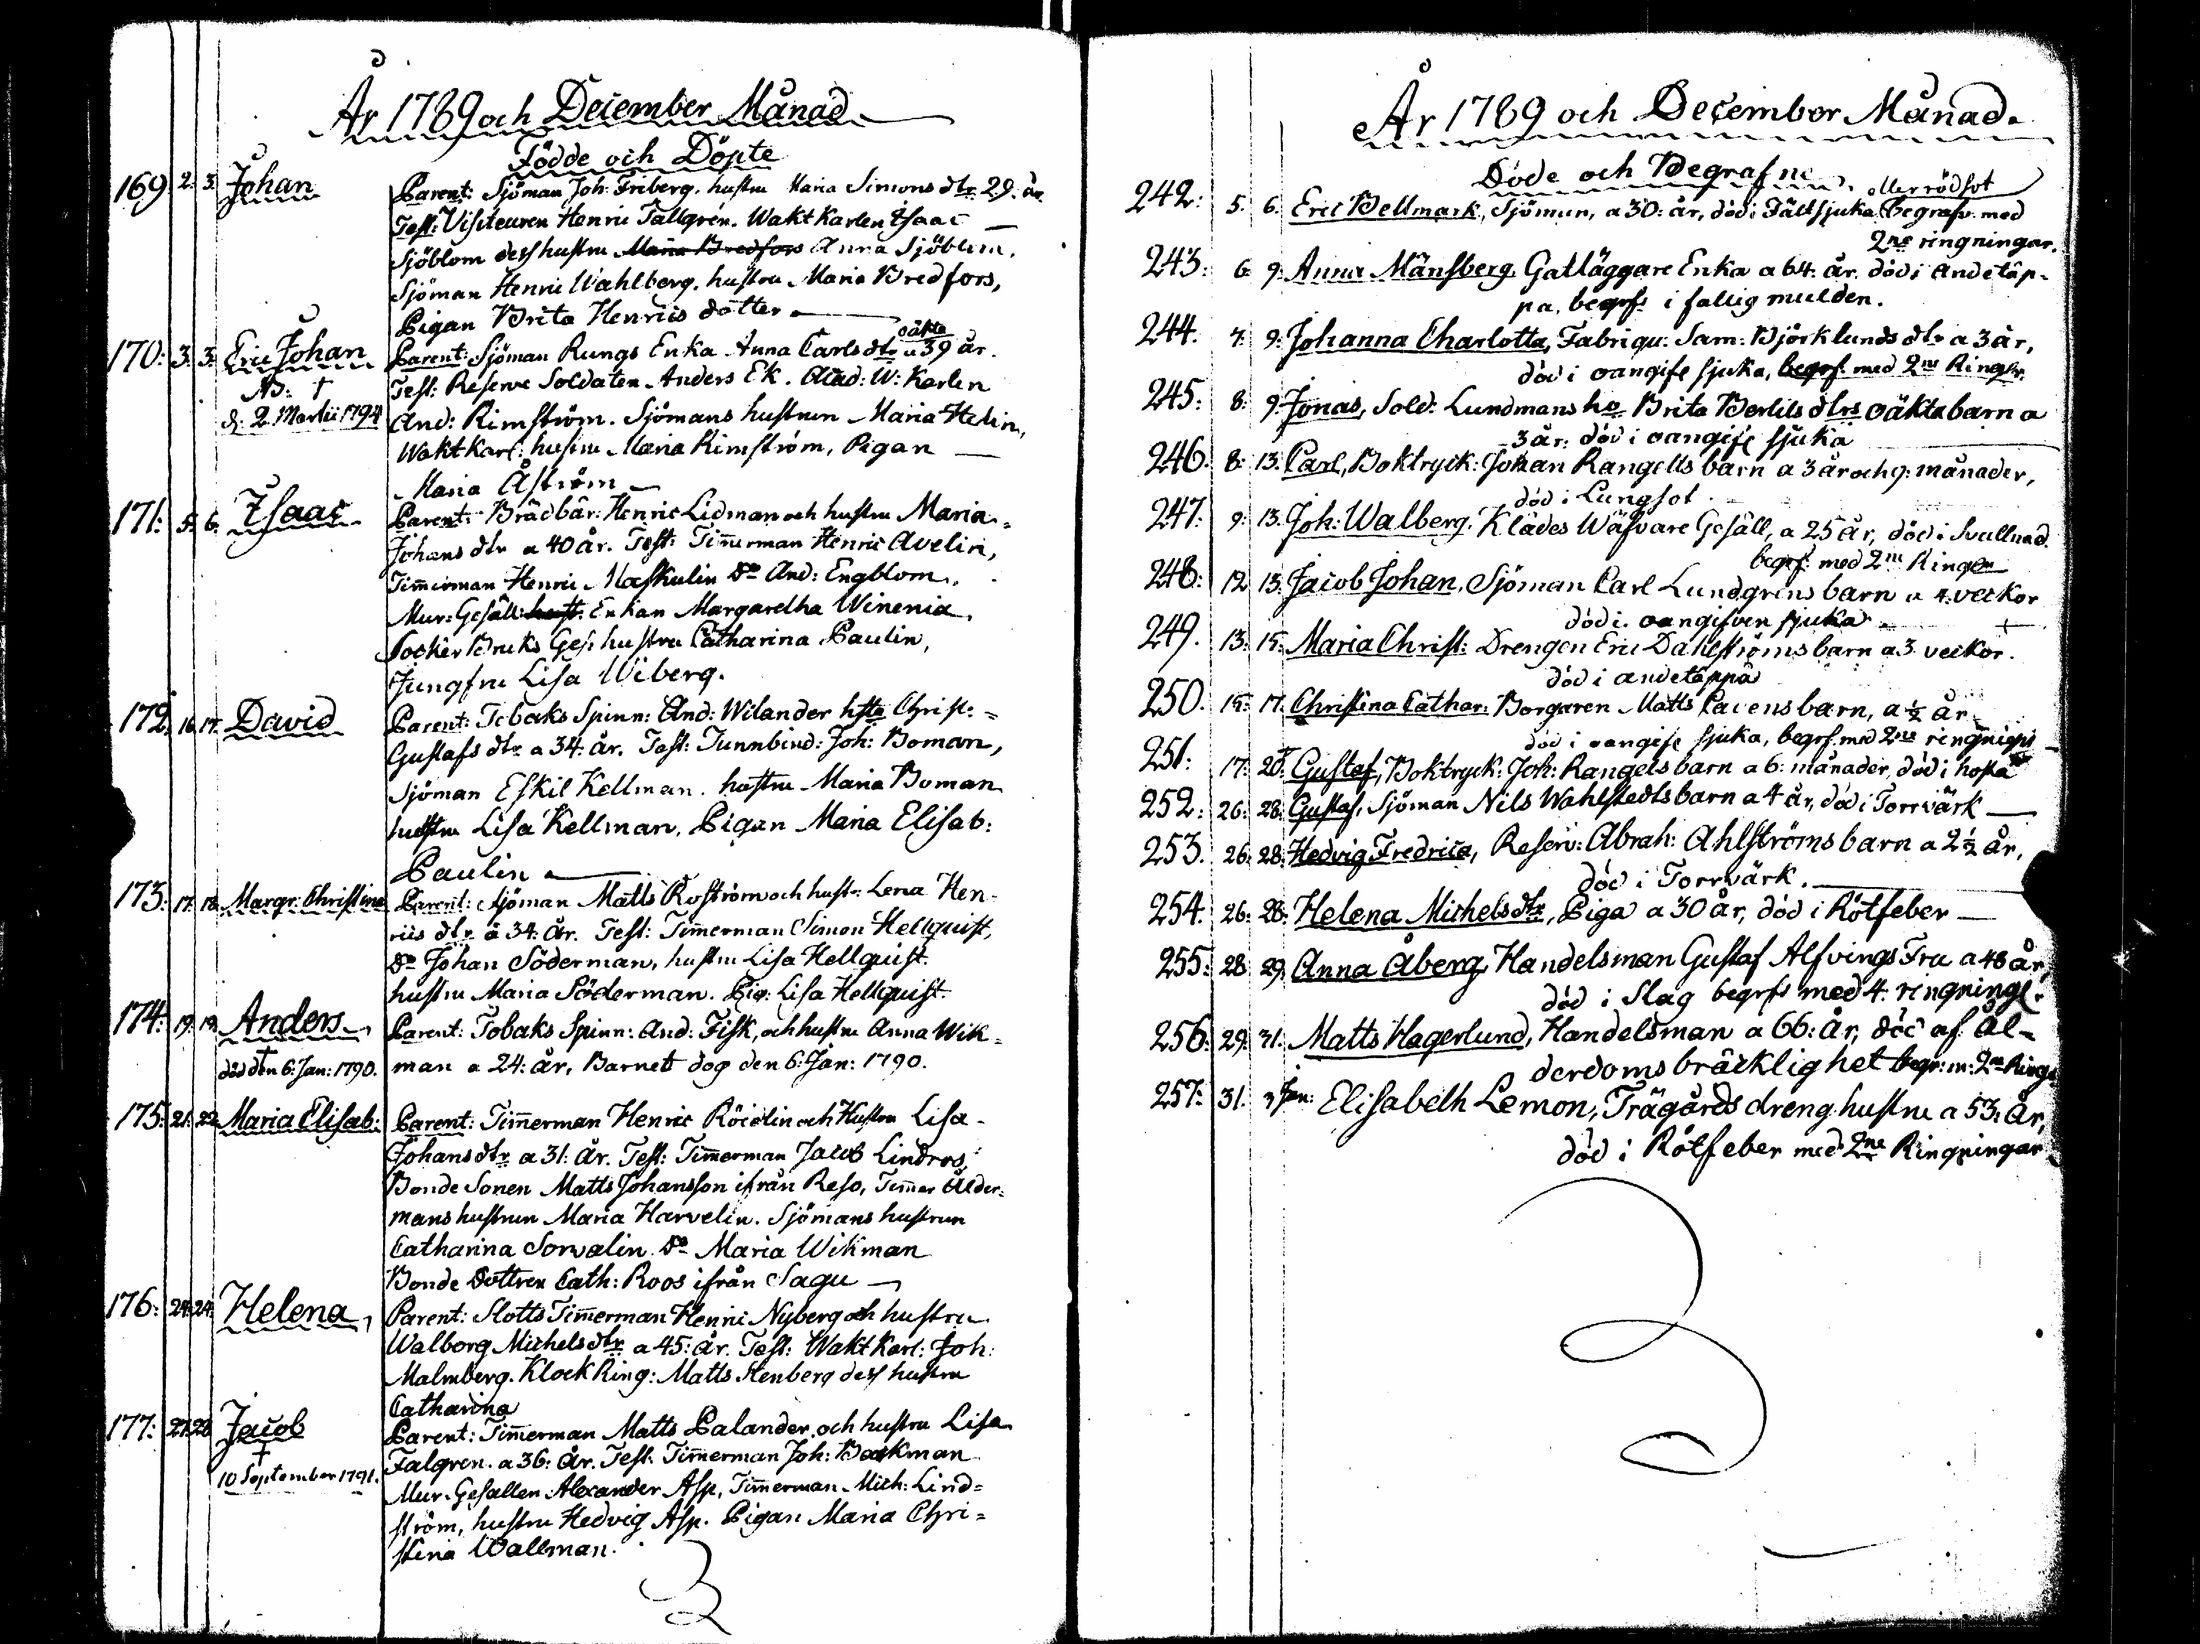 År 1789 och December Månad
Födde och Döpte
169: 2: 3: Johan Parent: Sjöman Joh: Friberg, hustru Maria Simons dtr 29: år
Test: Visiteuren Henric Tallgrén. Wakt Karlen Isaac
Sjöblom dess hustru Maria Bredfors Anna Sjöblom,
Sjöman Henric Wahlberg, hustru Maria Bredfors,
Pigan Brita Henrics dotter
oäkta
170: 3: 3: Eric Johan Parent: Sjöman Rungs Enka Anna Carls dtr a 39 år.
NB: † Test: Reserve Soldaten Anders Ek. Acad: W: Karlen
d: 2 Martii 1794 And: Rimström. Sjömans hustrun Maria Helin,
Wakt Karl: hustru Maria Rimström, Pigan
Maria Åström
171: 5: 6: Isaac Parent: Brädbär: Henric Lidman och hustru Maria
Johans dtr a 40 år. Test: Tim̄erman Henric Avelin,
Tim̄erman Henric Maskulin Do And: Engblom.
Mur: Gesäll: hust: Enkan Margaretha Winenia,
Socker Bruks Ges: hustru Catharina Paulin,
Jungfru Lisa Wiberg.
172: 16: 17: David Parent: Tobaks Spinn: And: Wilander hstr Christ: =
Gustafs dtr a 34: år. Test: Tunnbind: Joh: Boman,
Sjöman Eskil Kellman. hustru Maria Boman
hustru Lisa Kellman, Pigan Maria Elisab:
Paulin
173: 17: 18: Margr: Christina Parent: Sjöman Matts Roström och hust: Lena Hen-
rics dtr a 34: år. Test: Tim̄erman Simon Hellquist,
Do Johan Söderman, hustru Lisa Hellquist.
hustru Maria Söderman. Pig: Lisa Hellquist.
174: 19: 19: Anders Parent: Tobaks Spinn: And: Fisk, och hustru Anna Wik=
† död den 6: Jan: 1790. man a 24: år, Barnet dog den 6: Jan: 1790.
175: 21: 22: Maria Elisab: Parent: Tim̄erman Henric Röidlin och Hustru Lisa
Johans dtr a 31: år. Test: Tim̄erman Jacob Lindros,
Bonde Sonen Matts Johansson ifrån Reso, Tim̄er Ålder=
mans hustrun Maria Harvelin. Sjömans hustrun
Catharina Sorvalin. Do Maria Wikman
Bonde Dottren Cath: Roos ifrån Sagu
176: 24: 24: Helena, Parent: Slotts Tim̄erman Henric Nyberg och hustru
Walborg Michels dtr a 45: år. Test: Wakt Karl: Joh:
Malmberg. Klock Ring: Matts Stenberg dess hustru
Catharina
177: 27: 28: Jacob Parent: Tim̄erman Matts Palander och hustru Lisa
† Falgren. a 36: år. Test: Tim̄erman Joh: Backman
10 September 1791. Mur-Gesällen Alexander Asp, Tim̄erman Mich: Lind=
ström, hustru Hedvig Asp. Pigan Maria Chri=
stina Wallman.
År 1789 och December Månad.
Döde och Begrafne
eller rödsot
242: 5: 6: Eric Bellmark, Sjöman, a 30: år, död i Fältsjuka begrafv: med
2ne ringningar.
243: 6: 9: Anna Månsberg, Gatläggare Enka a 64: år, död i andetäp-
pa, begrfs i fallig mulden.
244. 7: 9: Johanna Charlotta, Fabriqu: Sam: Björklunds dtr a 3 år,
död i oangife sjuka, begrf: med 2ne Ringgr.
245: 8: 9: Jonas, Sold: Lundmans ho Brita Bertils dtrs oäkta barn a
3 år: död i oangife sjuka
246. 8: 13: Carl, Boktryck: Johan Rangells barn a 3 år och 9: månader,
död i Lungsot.
247: 9: 13. Joh: Walberg, Klädes Wäfvare Gesäll, a 25 år, död i Svullnad.
begrf: med 2ne Ringgr
248: 12 13: Jacob Johan, Sjöman Carl Lundgrens barn a 4: veckor
död i oangifven sjuka
249. 13: 15: Maria Christ: Drengen Eric Dahlströms barn a 3 veckor.
död i andetäppa
250. 15: 17. Christina Cathar: Borgaren Matts Pacens barn, a ½ år
död i oangife sjuka, begrf. med 2ne ringnigr
251: 17: 20: Gustaf, Boktryck: Joh: Rangels barn a 6: månader, död i hosta
252: 26: 28: Gustaf, Sjöman Nils Wahlstedts barn a 4 år, död i Torrvärk
253. 26: 28: Hedvig Fredrica, Reserv: Abrah: Ahlströms barn a 2½ år,
död i Torrvärk.
254. 26: 28: Helena Michels dtr, Piga a 30 år, död i Rötfeber
255: 28 29: Anna Åberg, Handelsman Gustaf Alfvings Fru a 48 år,
död i Slag begrfs med 4: ringningr
256: 29: 31: Matts Hagerlund, Handelsman a 66: år, död af Ål-
derdoms bräcklighet begr: m: 2ne Ringr
257: 31: 3 Jan: Elisabeth Lemon, Trägårds dreng hustru a 53: år,
död i Rötfeber med 2ne Ringningar